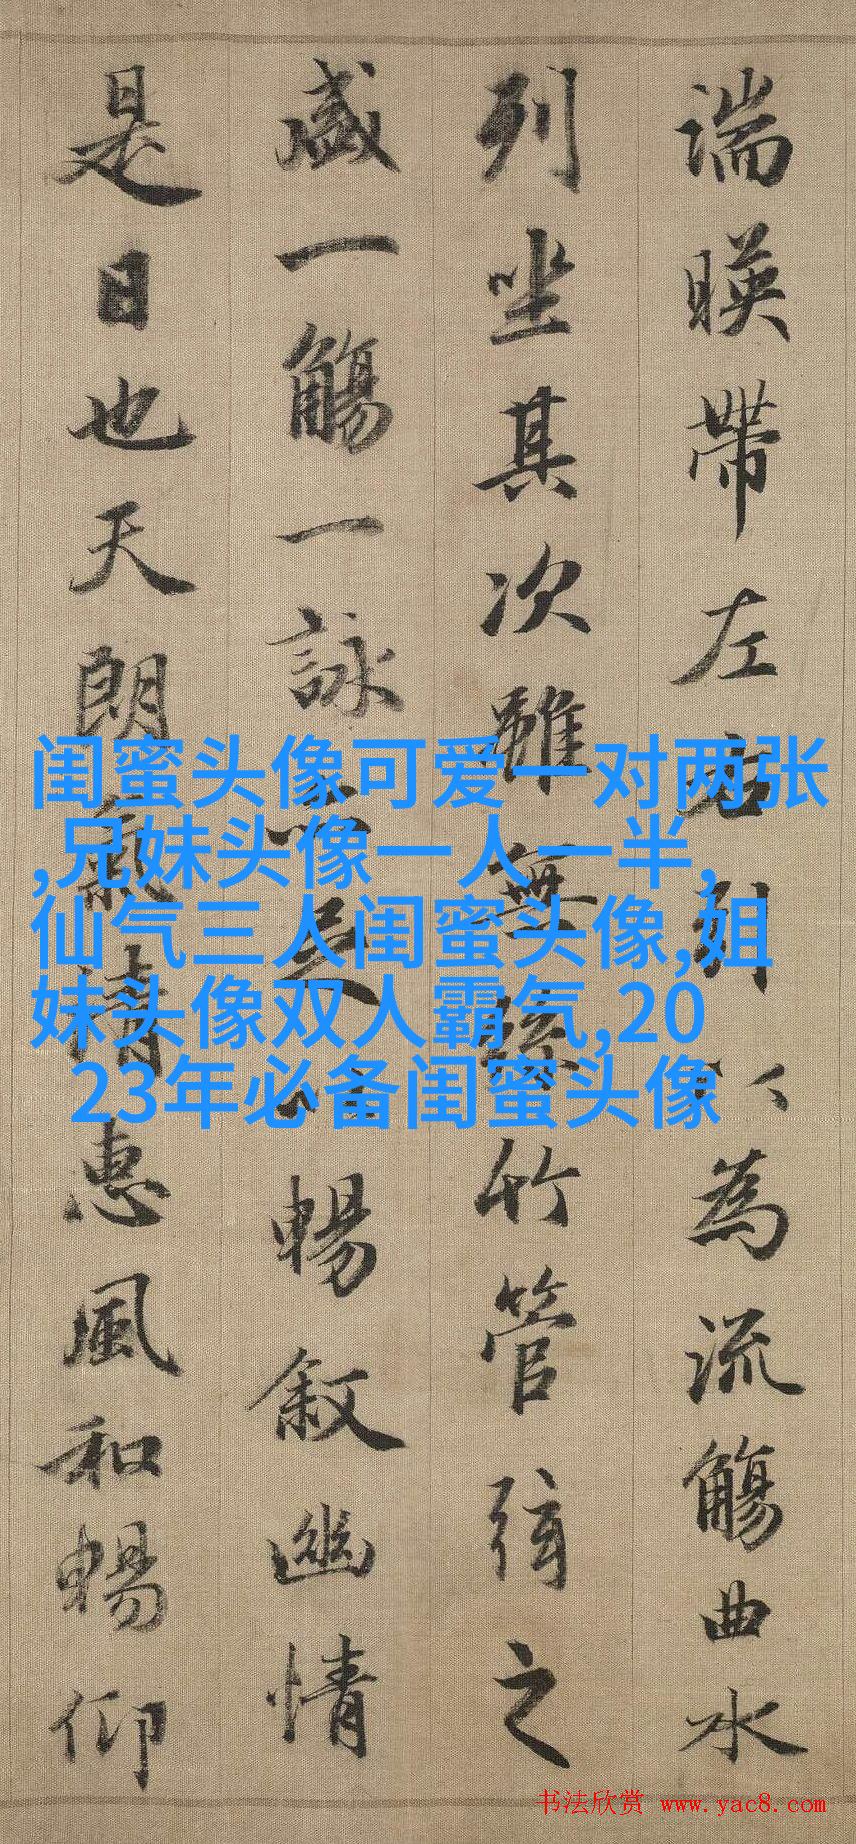 湍暎帶左右引以為流觴曲水
列坐其次雖無絲竹管弦之
盛一觴一詠亦足以暢叙幽情
是日也天朗氣清惠風和暢仰
闺蜜头像可爱一对两张
,兄妹头像一人一半,
仙气三人闺蜜头像,姐
妹头像双人霸气,20
23年必备闺蜜头像
书法欣赏 www.yac8.com